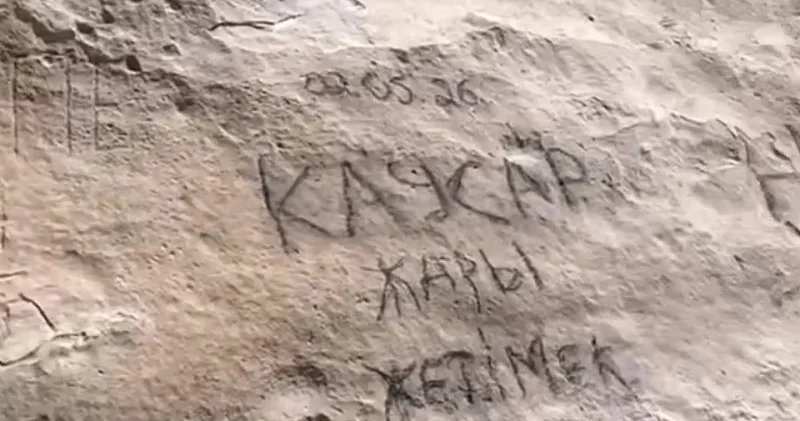 02.05.26
КАУСАР
ЖАРЫ
ЖЕТІМЕК